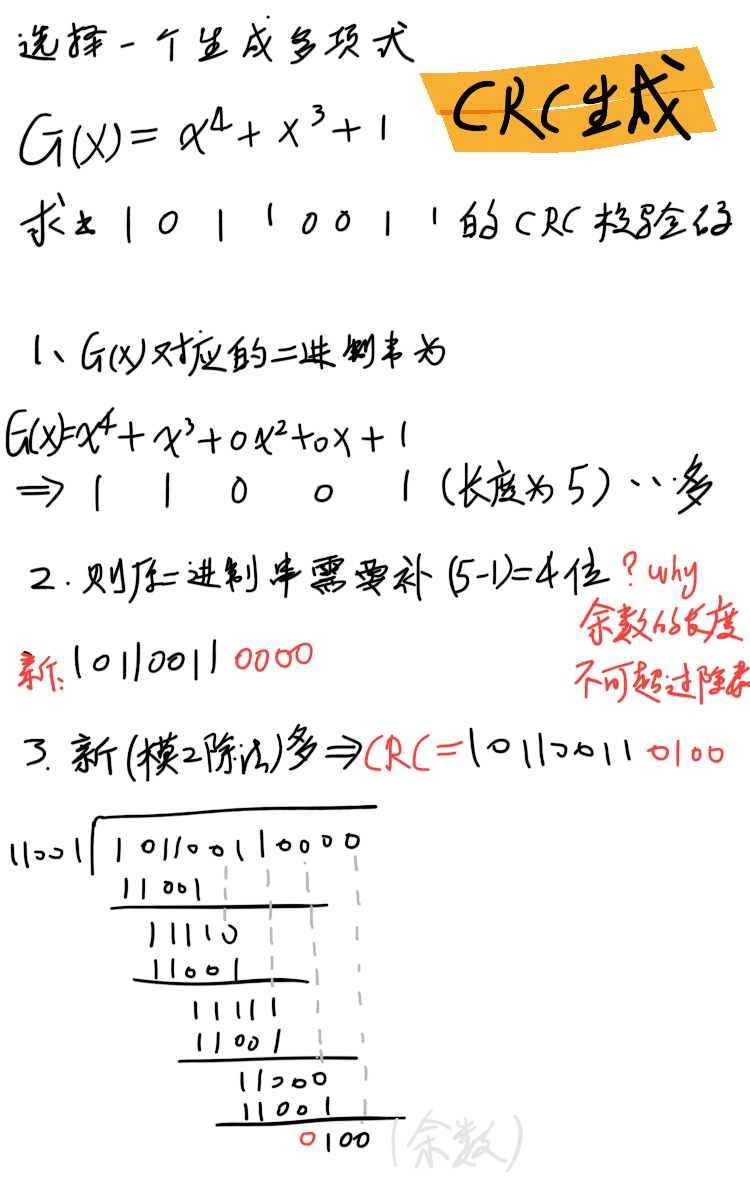 选择一个生成多项式
CRC生成
G(x)= x⁴+x³+1
求出 1 0 1 1 0 0 1 1 的CRC校验码
1、G(x)对应的二进制串为
G(x)=x⁴+x³+0x²+0x+1
⇒ 1 1 0 0 1 (长度为5)…多
2.则原二进制串需要补(5-1)=4位 ?why
余数的长度
不可超过除数
新:10110011 0000
3.新(模2除法)多⇒CRC=10110011 0100
11001 101100110000
11001
11110
11001
11111
11001
11000
11001
0100 (余数)